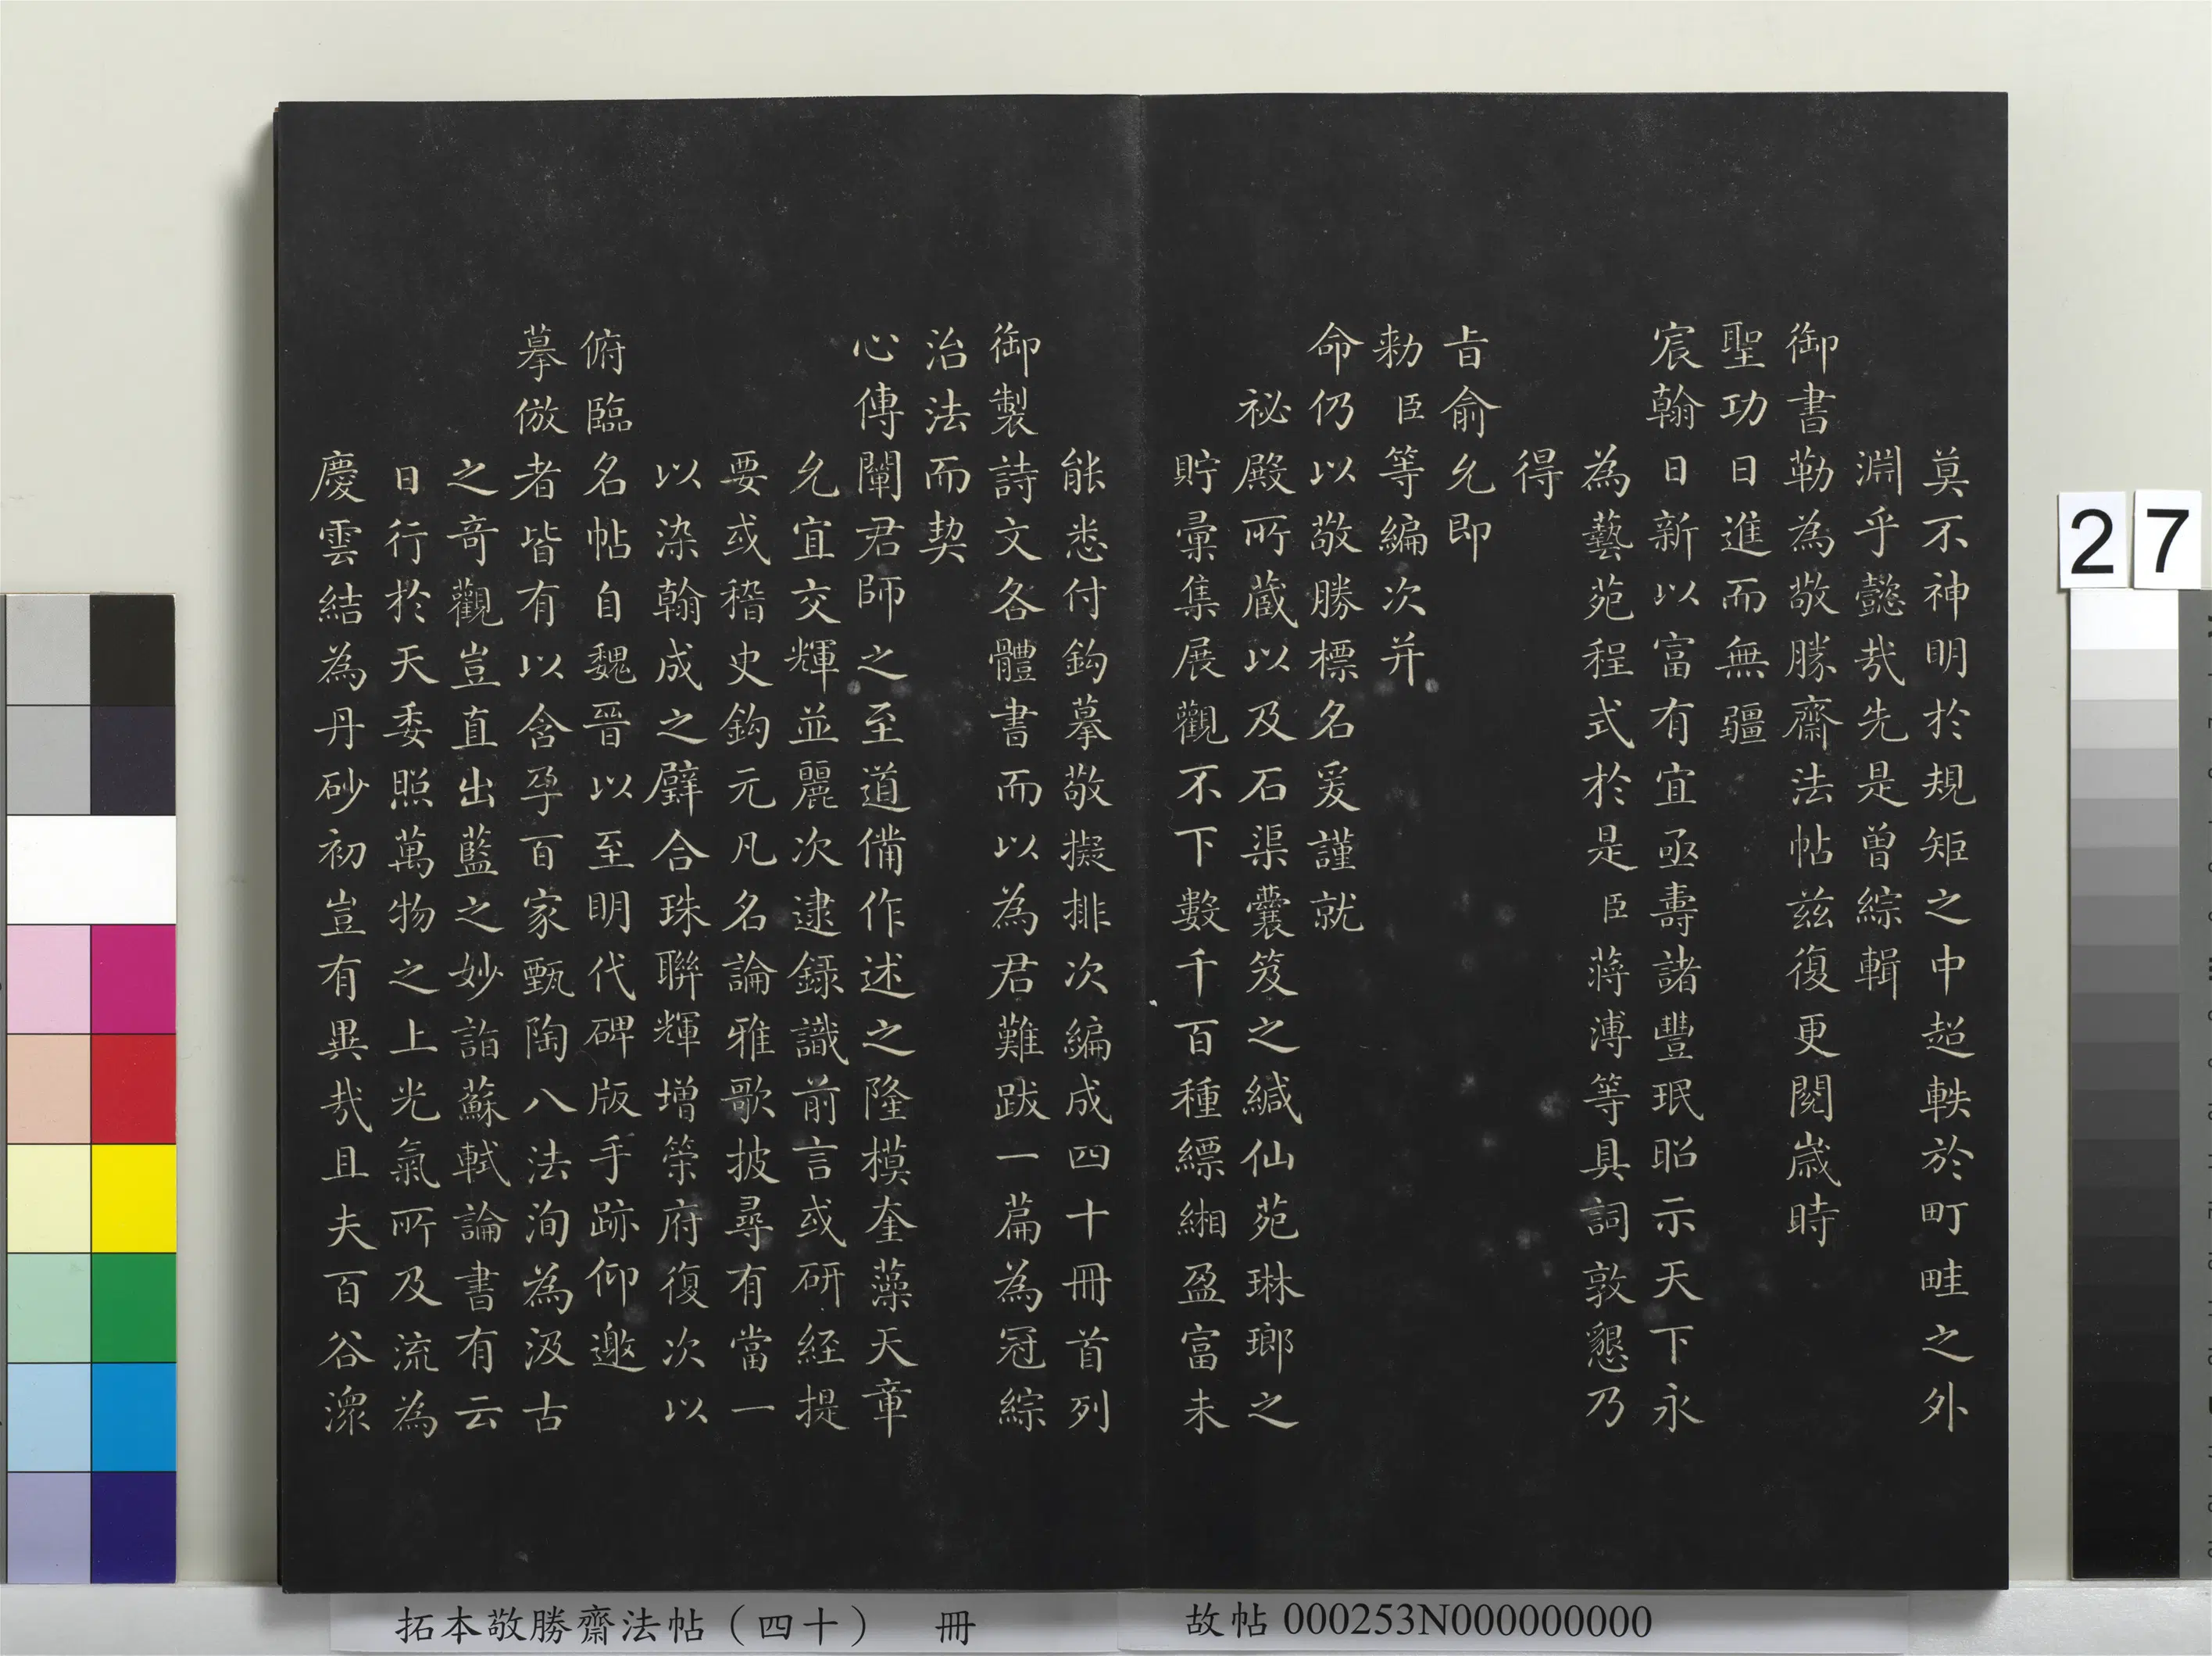 莫不神明於規矩之中超軼於町畦之外
淵乎懿哉先是曾綜輯
御書勒為敬勝齋法帖茲復更閱歲時
聖功日進而無疆
宸翰日新以富有宜亟壽諸豐珉昭示天下永
為藝苑程式於是臣蔣溥等具詞敦懇乃
得
旨俞允即
勅臣等編次并
命仍以敬勝標名爰謹就
祕殿所藏以及石渠囊笈之緘仙苑琳瑯之
貯彙集展觀不下數千百種縹緗盈富未
能悉付鈎摹敬擬排次編成四十冊首列
御製詩文各體書而以為君難跋一篇為冠綜
治法而契
心傳闡君師之至道備作述之隆模奎藻天章
允宜交輝並麗次逮錄識前言或研経提
要或稽史鈎元凡名論雅歌披尋有當一
以染翰成之璧合珠聯輝增策府復次以
俯臨名帖自魏晉以至明代碑版手跡仰邀
摹倣者皆有以含孕百家甄陶八法洵為汲古
之奇觀豈直出藍之妙詣蘇軾論書有云
日行於天委照萬物之上光氣所及流為
慶雲結為丹砂初豈有異哉且夫百谷潀
27
拓本敬勝齋法帖（四十） 冊
故帖 000253N000000000